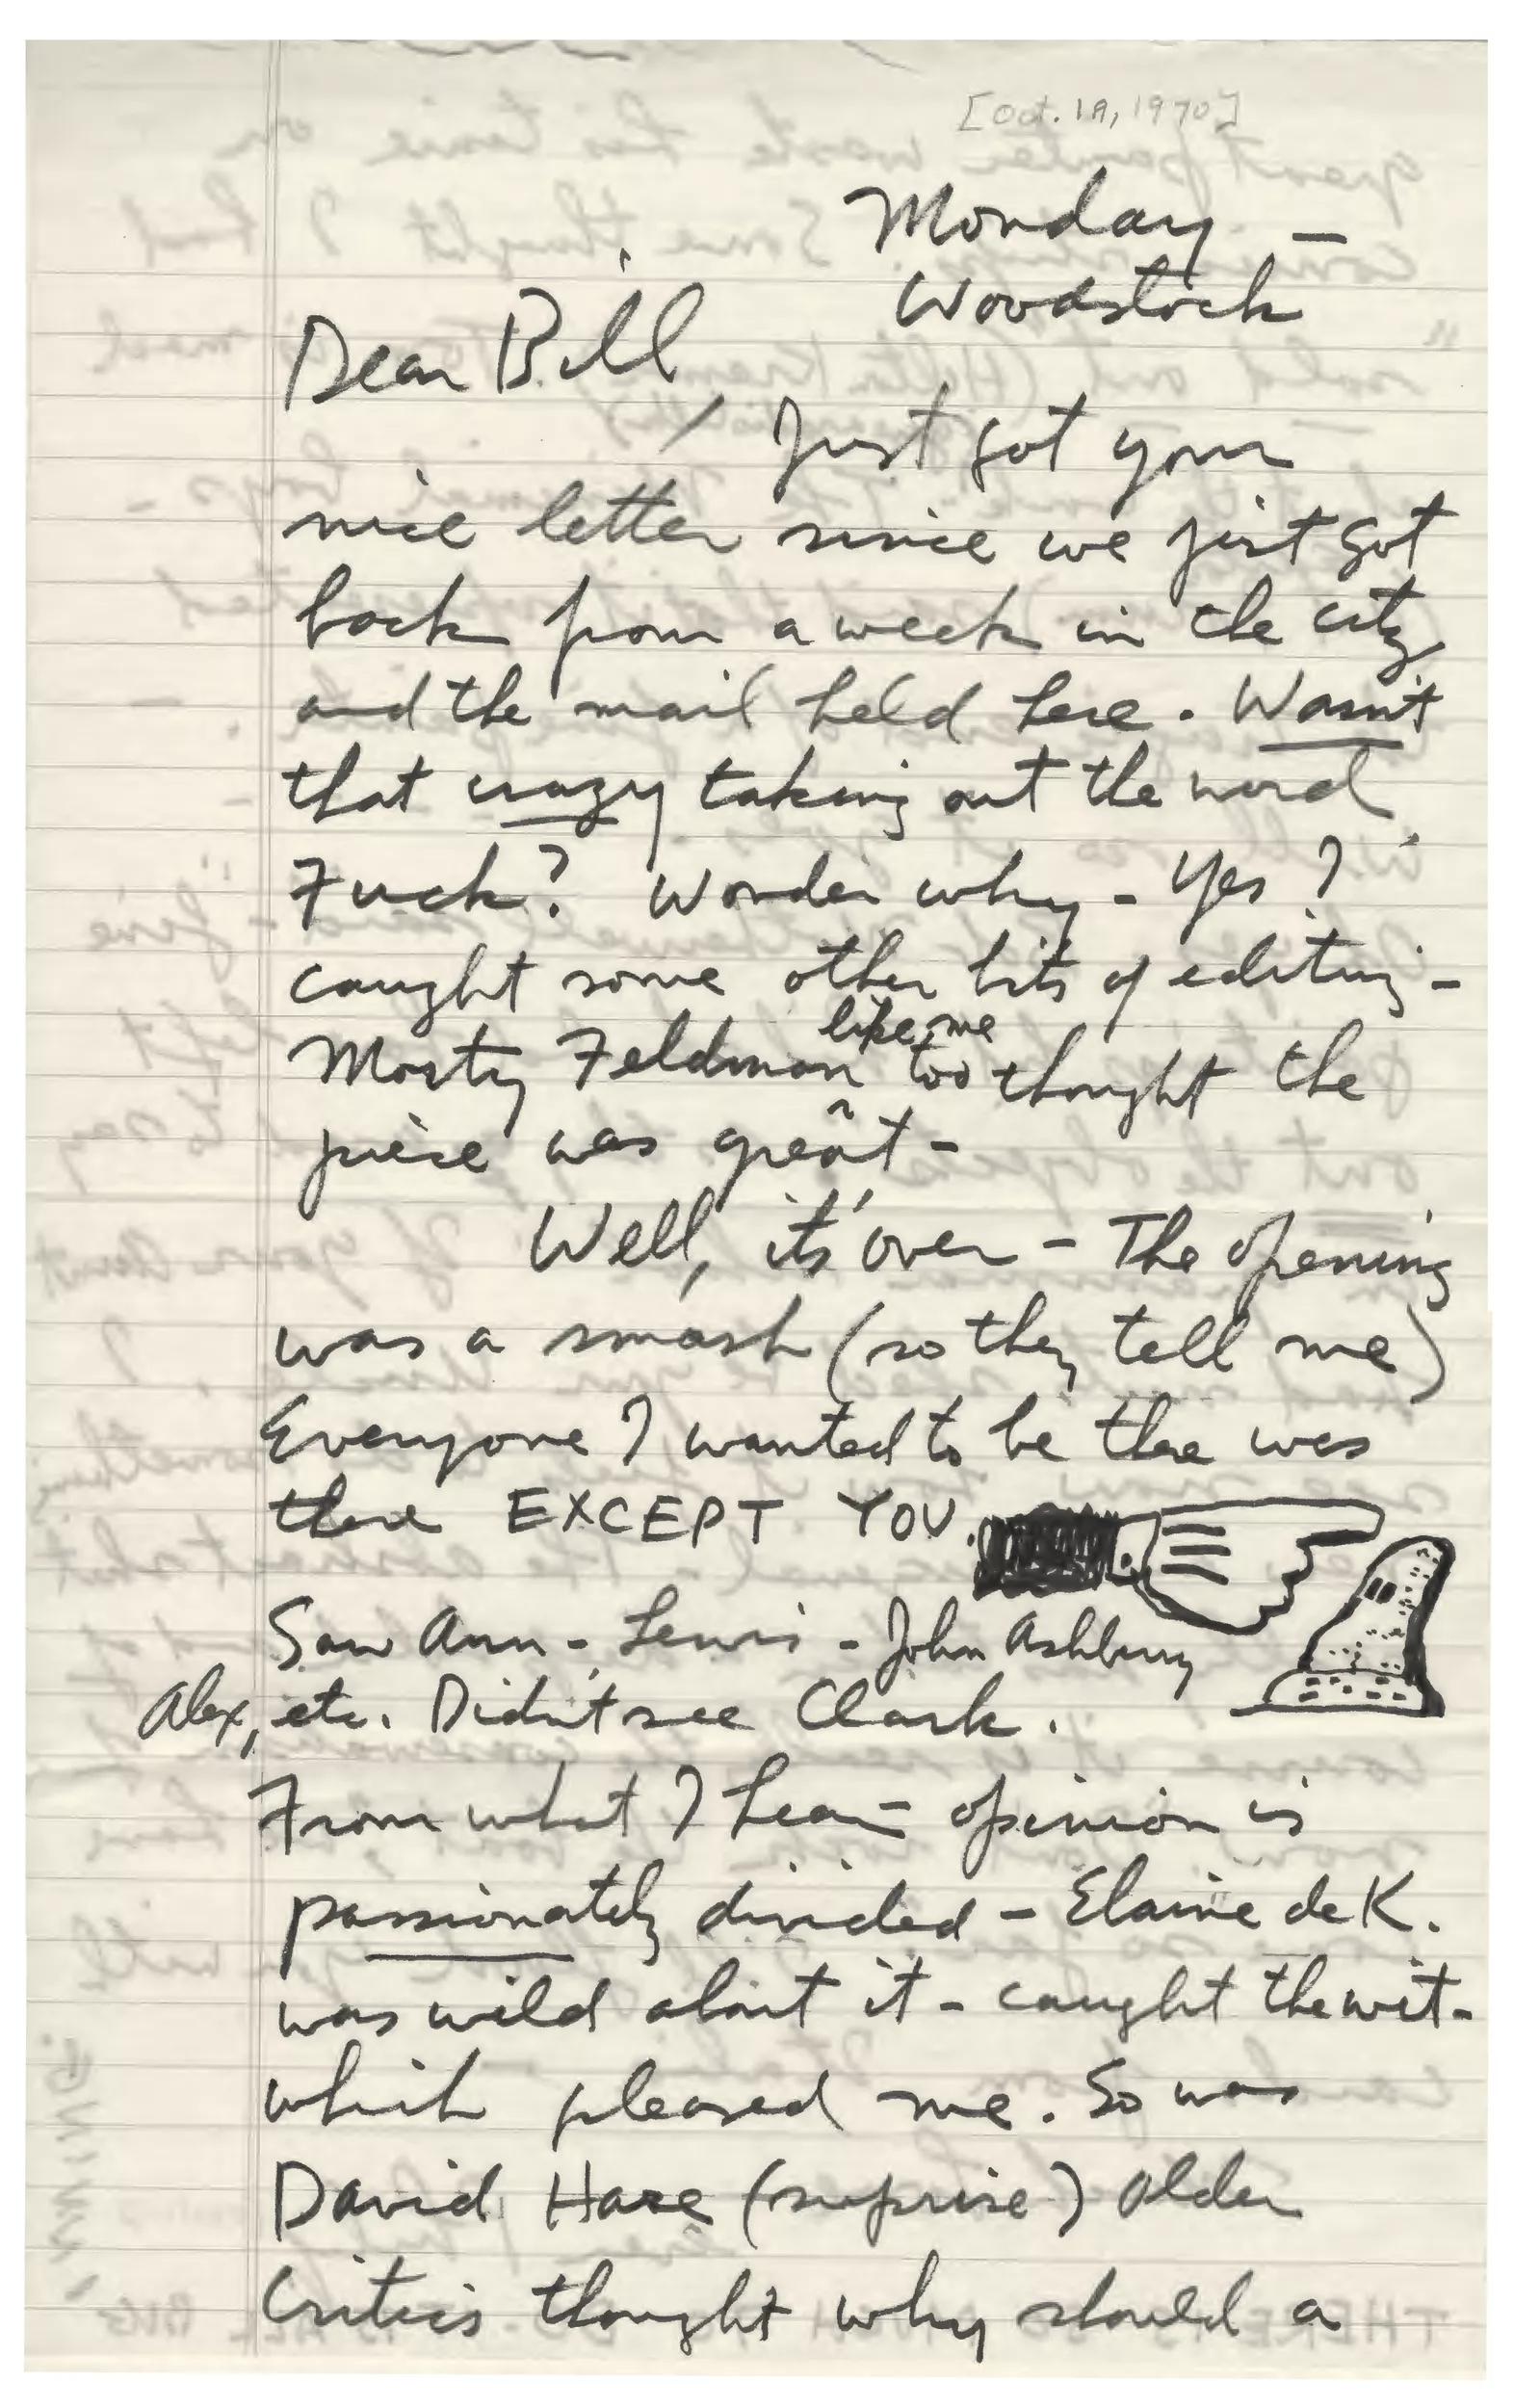 [Oct. 19, 1970]
Monday —
Woodstock
Dear Bill,
Just got your
nice letter since we just got
back from a week in the city
and the mail held here. Wasn't
that crazy taking out the word
Fuck? Wonder why - Yes? I
caught some other bits of editing -
like me
Morty Feldman too thought the
piece was great -
Well, it's over - The opening
was a smash (so they tell me)
Everyone I wanted to be there was
there EXCEPT YOU.
Saw Ann - Lewis - John Ashbery
Alex, etc. Didn't see Clark.
From what I hear - opinion is
passionately divided - Elaine de K.
was wild about it - caught the wit -
which pleased me. So was
David Hare (surprise) Older
Critics thought why should a